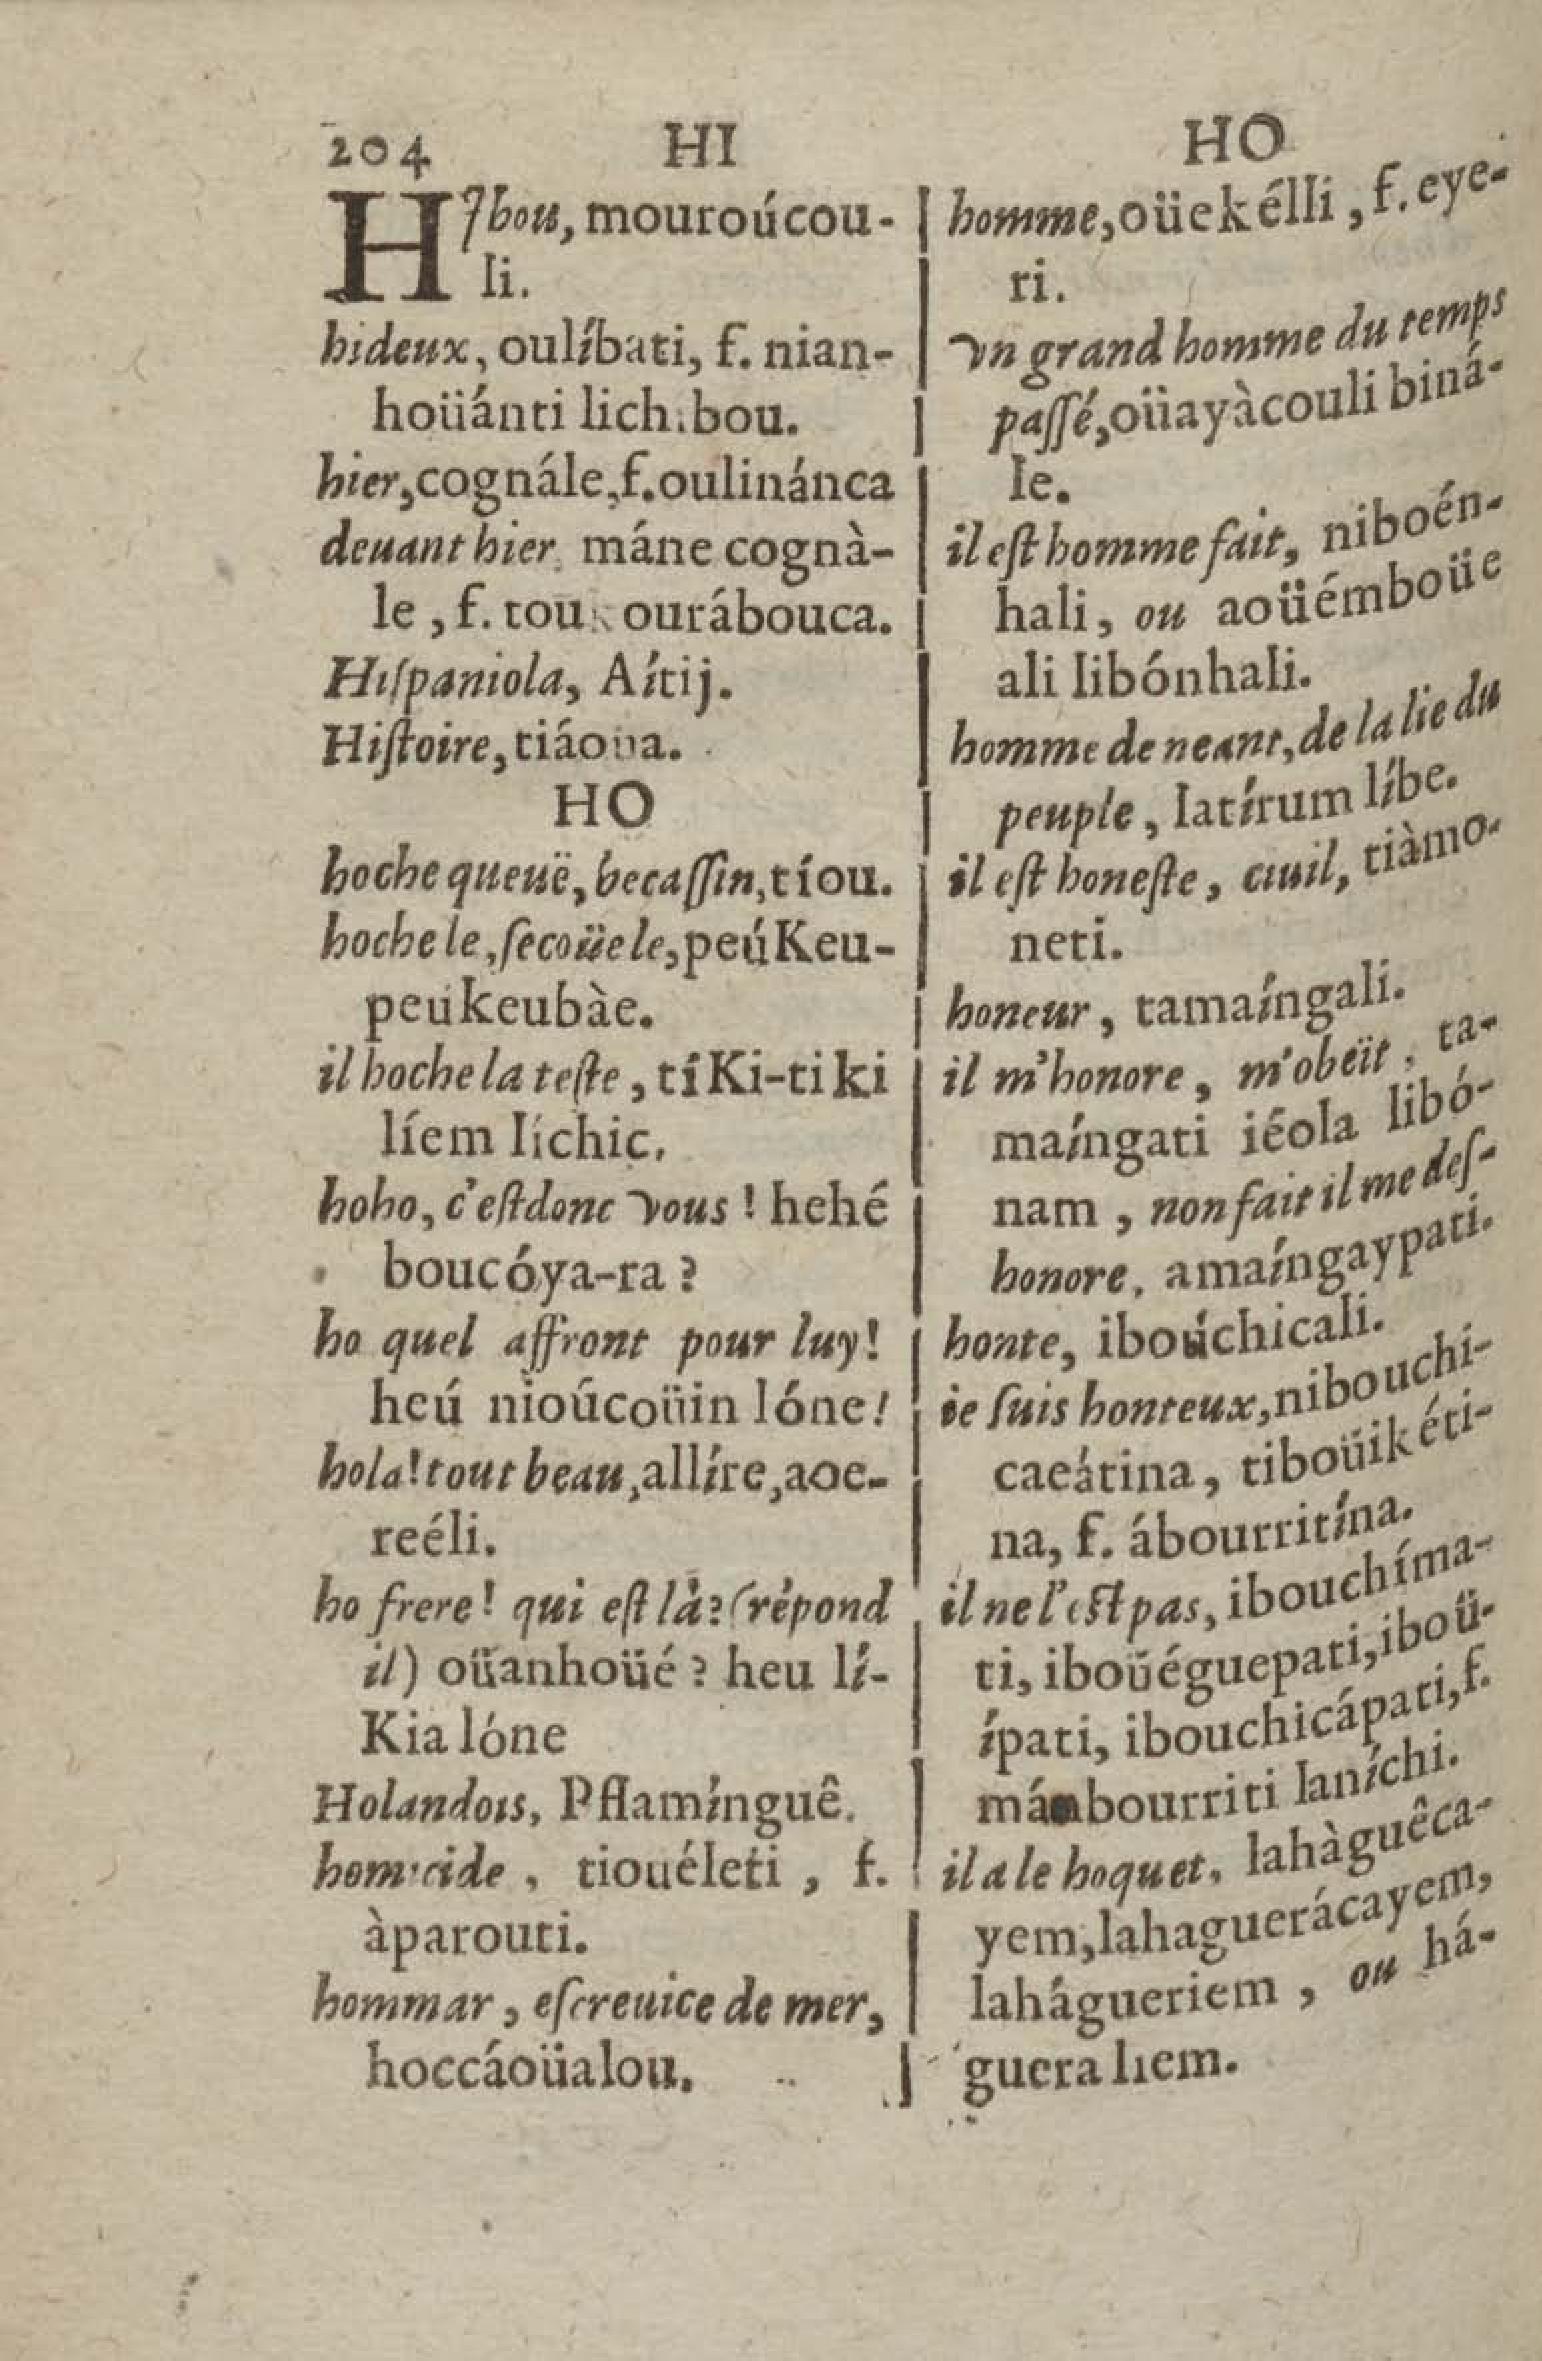 204 HI HO
HIbou, mouroúcou-
li.
hideux, oulíbati, f. nian-
hoüánti lichibou.
hier, cognále, f. oulinánca
deuant hier, máne cognà-
le, f. touK ourábouca.
Hiſpaniola, Aítij.
Hiſtoire, tiáoua.
HO
hoche queuë, becaſſin, tíou.
hoche le, ſecoüe le, peúKeu-
peúkeubàe.
il hoche la teſte, tíKi-tiki
líem líchic.
hoho, c'eſt donc vous ! hehé
boucóya-ra ?
ho quel affront pour luy !
heú nioúcoüin lóne !
hola ! tout beau, allíre, aoe-
reéli.
ho frere ! qui eſt là ? (répond
il) oüanhoüé ? heu lí-
Kia lóne
Holandois, Pflamínguê.
homicide, tiouéleti, f.
àparouti.
hommar, eſcreuice de mer,
hoccáoüalou.
homme, oüekélli, f. eye-
ri.
vn grand homme du temps
paſſé, oüayàcouli biná-
le.
il eſt homme fait, niboén-
hali, ou aoüémboüe
ali libónhali.
homme de neant, de la lie du
peuple, latírum líbe.
il eſt honeſte, ciuil, tiàmo-
neti.
honeur, tamaíngali.
il m'honore, m'obeït, ta-
maíngati iéola libó-
nam, non fait il me deſ-
honore, amaíngaypati.
honte, iboúchicali.
ie ſuis honteux, nibouchi-
caeátina, tiboüikéti-
na, f. ábourritína.
il ne l'eſt pas, ibouchíma-
ti, iboüéguepati, iboü-
ípati, ibouchicápati, f.
mámbourriti laníchi.
il a le hoquet, lahàguêca-
yem, lahaguerácayem,
lahágueriem, ou há-
guera liem.